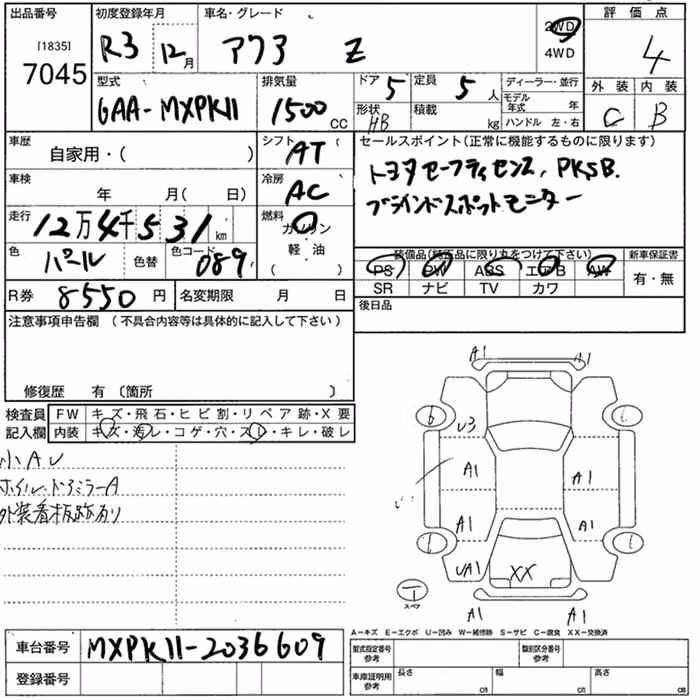 出品番号 初度登録年月 車名・グレード 2WD 評価点
[1835] 7045 R3 12月 アクア Z 4WD 4
型式 排気量 ドア 5 定員 5人 ディーラー・並行 外装 内装
6AA-MXPK11 1500cc 形状 HB 積載 kg モデル年式 年 C B
ハンドル 左・右
車歴 自家用・( ) シフト AT セールスポイント(正常に機能するものに限ります)
車検 年 月( 日) 冷房 AC トヨタセーフティセンス, PKSB.
走行 12万4千531km 燃料 ガソリン・軽油・( ) ブラインドスポットモニター
色 パール 色替 色コード 089 装備品(純正品に限り丸をつけて下さい) 新車保証書
PS PW ABS エアB AW 有・無
SR ナビ TV カワ
R券 8550円 名変期限 月 日 後日品
注意事項申告欄 (不具合内容等は具体的に記入して下さい)
修復歴 有 (箇所 )
検査員 FW キズ・飛石・ヒビ割・リペア跡・X要
記入欄 内装 キズ・汚レ・コゲ・穴・スレ・キレ・破レ
小AU
ホイル.ドアミラーA
外装看板跡有り
A1 A1
6 U3
A1 A1
A1 A1
UA1 XX
T
スペア
A1 A1
A-キズ E-エクボ U-凹み W-補修跡 S-サビ C-腐食 XX-交換済
車台番号 MXPK11-2036609
登録番号
型式指定番号 参考 類別区分番号 参考
車庫証明用 参考 長さ cm 幅 cm 高さ cm